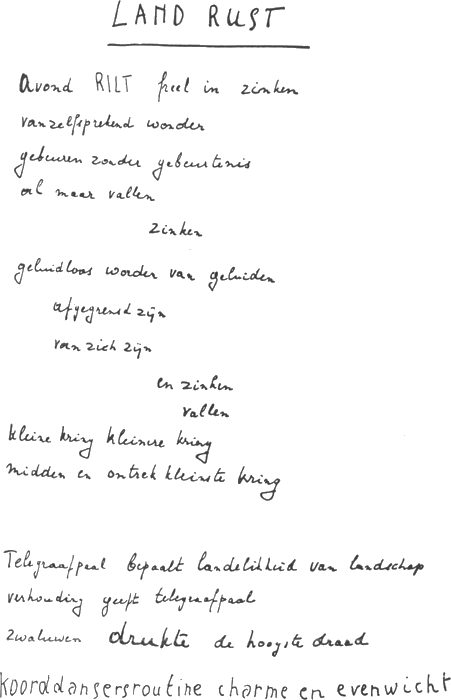 LAND RUST
Avond RILT freel in zinken
vanzelfsprekend worden
gebeuren zonder gebeurtenis
al maar vallen
zinken
geluidloos worden van geluiden
afgegrensd zijn
van zich zijn
en zinken
vallen
kleine kring kleinere kring
midden en omtrek kleinste kring
Telegraafpaal bepaalt landelikheid van landschap
verhouding geeft telegraafpaal
Zwaluwen drukte de hoogste draad
koorddansersroutine charme en evenwicht